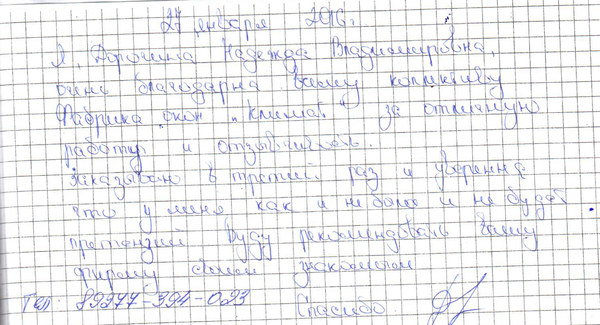 27 января 2016 г.
Я, Дорочина Надежда Владимировна,
очень благодарна вашему коллективу
Фабрика окон "Климат" за отличную
работу и отзывчивость.
Заказываю в третий раз и уверенна
что у меня как и не было и не будет
претензий буду рекомендовать вашу
фирму своим знакомым
Тел: 89277-394-023 Спасибо.